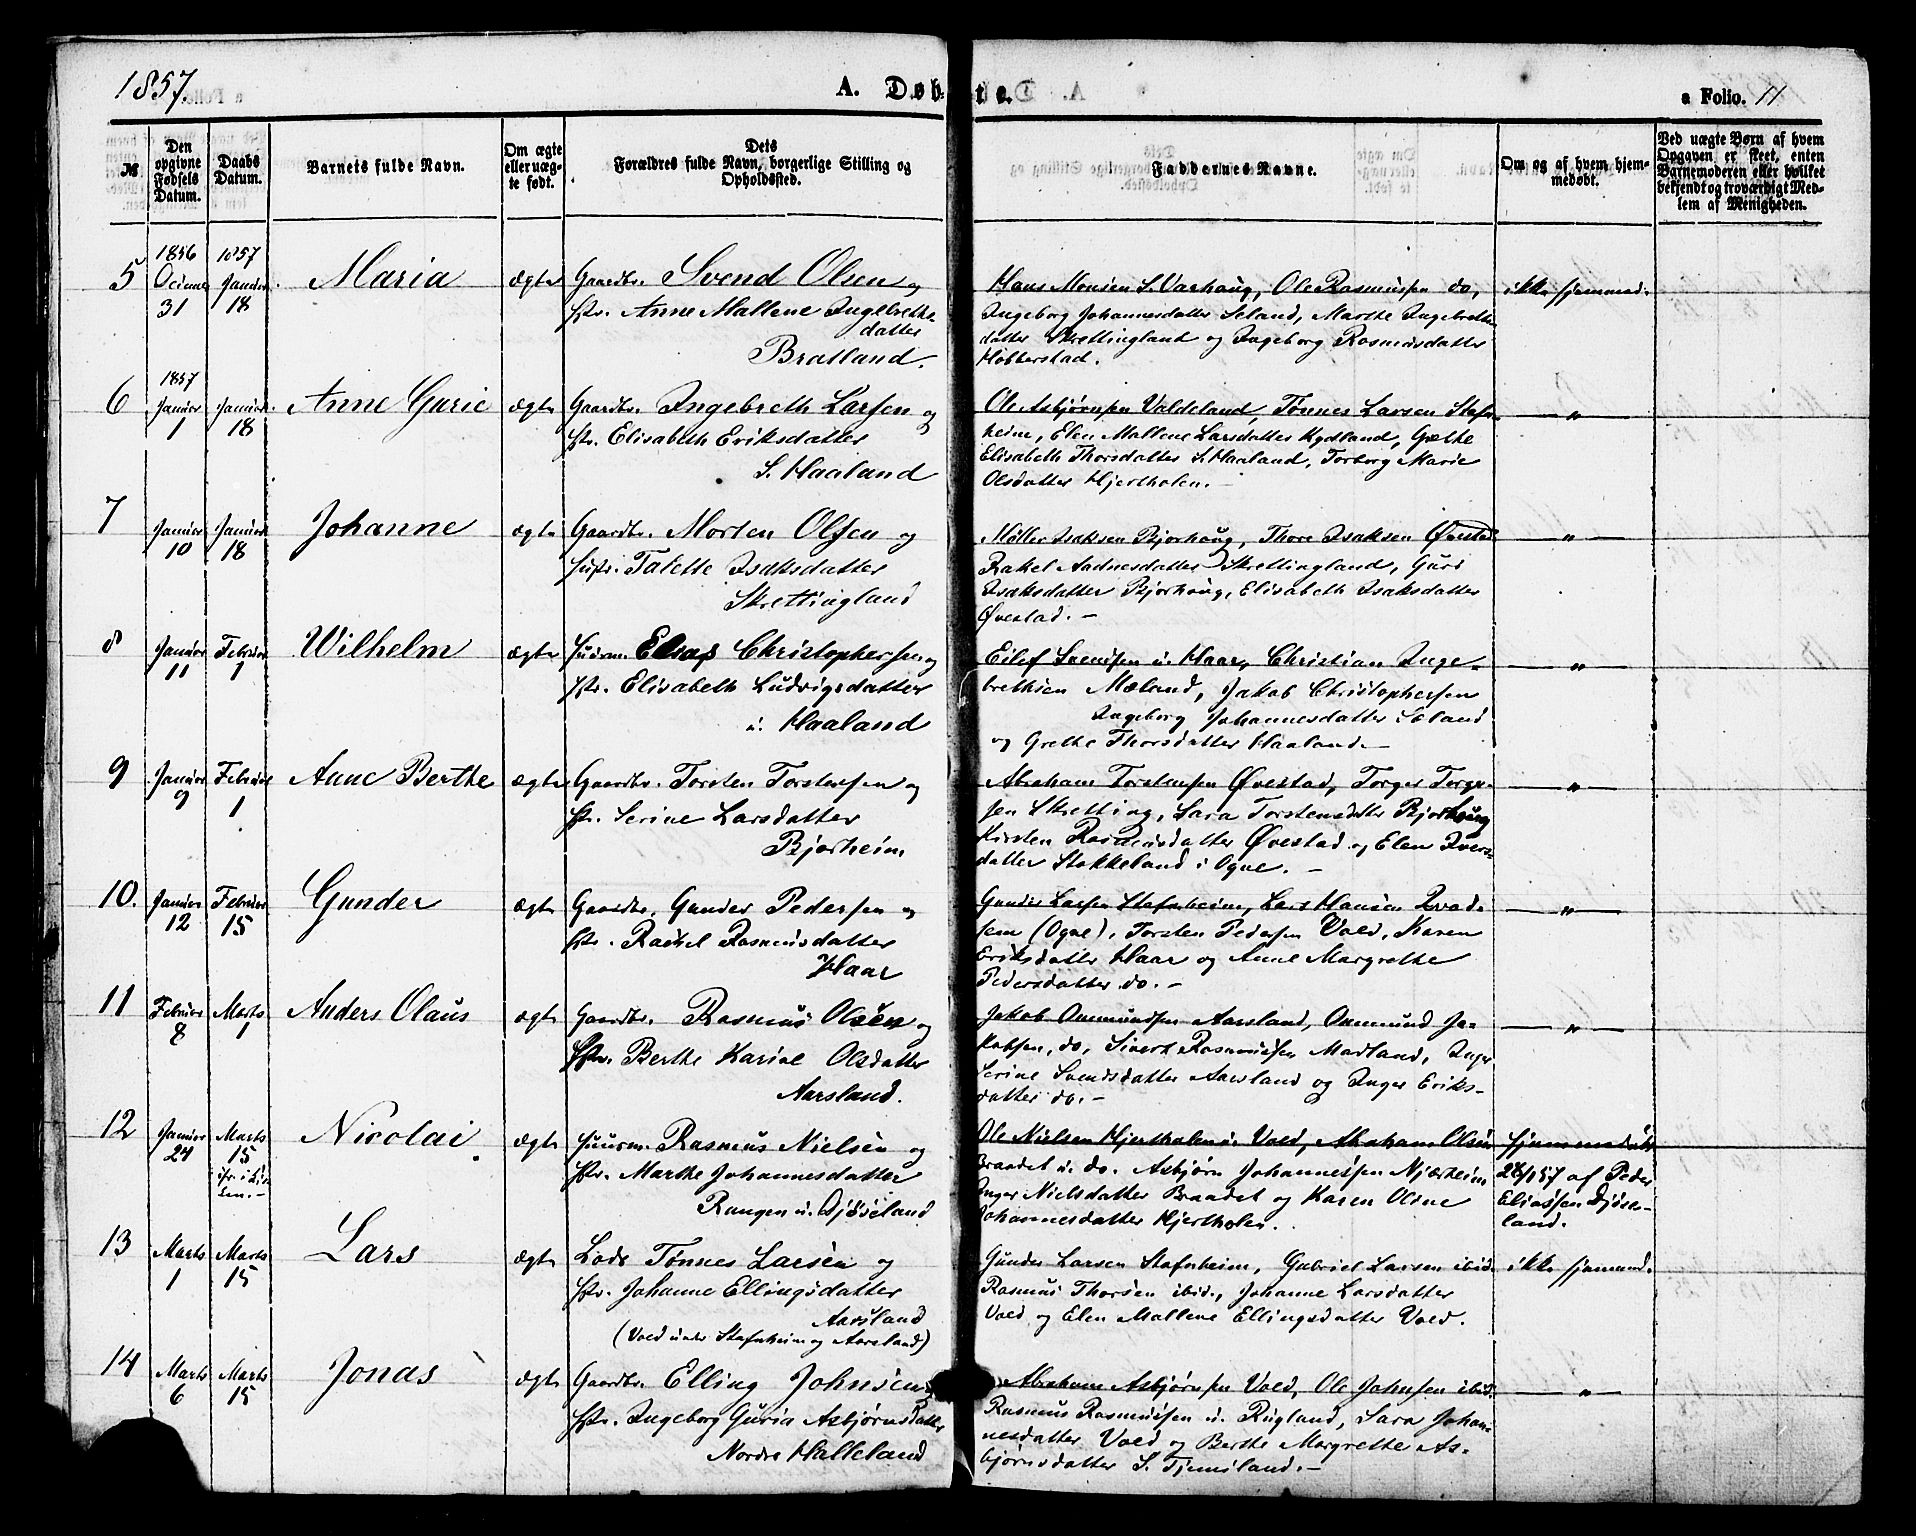 1857.
A. Døbte.
a Folio. 11
№
Den opgivne Fødsels Datum.
Daabs Datum.
Barnets fulde Navn.
Om ægte eller uægte født.
Dets Forældres fulde Navn, borgerlige Stilling og Opholdssted.
Faddernes Navne.
Om og af hvem hjemmedøbt.
Ved uægte Børn af hvem Opgaven er skeet, enten Barnemoderen eller hvilket bekjendt og troværdigt Medlem af Menigheden.
5
1856
31
1857
Januar
18
Maria
ægte
Gaardbr. Svend Olsen og
Hstr. Anne Mallene Ingebreths-
datter
Bratland.
Hans Monsen S. Varhaug, Ole Rasmussen do,
Ingeborg Johannesdatter Seland, Marthe Ingebreths-
datter Skrettingland og Ingeborg Rasmusdatter
Hobberstad.
ikke hjemmed.
6
1857
Januar
1
Januar
18
Anne Gurie
ægte
Gaardbr. Ingebreth Larsen og
Hstr. Elisabeth Eriksdatter
S. Haaland
Ole Asbjørnsen Valdeland, Tønnes Larsen Stafn-
heim, Elen Mallene Larsdatter Kydland, Grethe
Elisabeth Thorsdatter S. Haaland, Torborg Marie
Olsdatter Hjertholen.-
— " —
7
Januar
10
Januar
18
Johanne
ægte
Gaardbr. Morten Olsen og
Hustr. Talette Isaksdatter
Skrettingland
Møller Isaksen Bjorhaug, Thore Isaksen Øvestad
Rakel Aadnesdatter Skrettingland, Guri
Isaksdatter Bjorhaug, Elisabeth Isaksdatter
Øvestad.-
— " —
8
Januar
11
Februar
1
Wilhelm
ægte
Huusm. Elias Christophersen og
Hstr. Elisabeth Ludvigsdatter
u. Haaland
Eilef Svensen u. Haar, Christian Inge-
brethsen Mæland, Jakob Christophersen
Ingeborg Johannesdatter Seland
og Grethe Thorsdatter Haaland.-
— " —
9
Januar
9
Februar
1
Anne Berthe
ægte
Gaardbr. Torsten Torstensen og
Hstr. Serine Larsdatter
Bjorheim
Abraham Torstensen Øvestad, Torger Torger-
sen Skretting, Sara Torstensdatter Bjorhaug
Kirsten Rasmusdatter Øvestad og Elen Ivers-
datter Stokkeland i Ogne.-
— " —
10.
Januar
12
Februar
15
Gunder
ægte
Gaardbr. Gunder Pedersen og
Hstr. Rachel Rasmusdatter
Haar
Gunder Larsen Stafnheim, Lars Hansen
(Ogne), Torsten Pedersen Vold, Karen
Eriksdatter Haar og Anne Margrethe
Pedersdatter do.-
— " —
11
Februar
8
Marts
1
Anders Olaus
ægte
Gaardbr. Rasmus Olsen og
Hstr. Berthe Karine Olsdatter
Aarsland.
Jakob Ommundsen Aarsland, Ommund Ja-
kobsen, do, Sivert Rasmussen Madland, Inger
Serine Svendsdatter Aarsland og Inger Eriks-
datter do.-
— " —
12
Januar
24
Marts
15
Nicolai.
ægte
Huusm. Rasmus Nielsen og
Hstr. Marthe Johannesdatter
Rungen u. Djøseland
Ole Nielsen Hjertholen u. Vold, Abraham Olsen
Braadet u. do. Asbjørn Johannessen Njærheim
Inger Nielsdatter Braadet og Karen Oline
Johannesdatter Hjertholen.
hjemmedøbt
af Peder
Eliassen Djøse-
land.
13
Marts
1
Marts
15
Lars
ægte
Lods Tønnes Larsen og
Hstr. Johanne Ellingsdatter
Aarsland
(Vold under Stafnheim og Aarsland)
Gunder Larsen Stafnheim, Gabriel Larsen ibid.
Rasmus Thorsen ibid., Johanne Larsdatter
Vold og Elen Mallene Ellingsdatter Vold.
ikke hjemmed.
14
Marts
6
Marts
15
Jonas
ægte
Gaardbr. Elling Johnsen og
Hstr. Ingeborg Guria Asbjørnsdatter
Nordre Halleland
Abraham Asbjørnsen Vold, Ole Johnsen ibid.
Rasmus Rasmussen u. Rugland, Sara Johan-
nesdatter Vold og Berthe Margrethe As-
bjørnsdatter S. Tjemsland.-
— " —